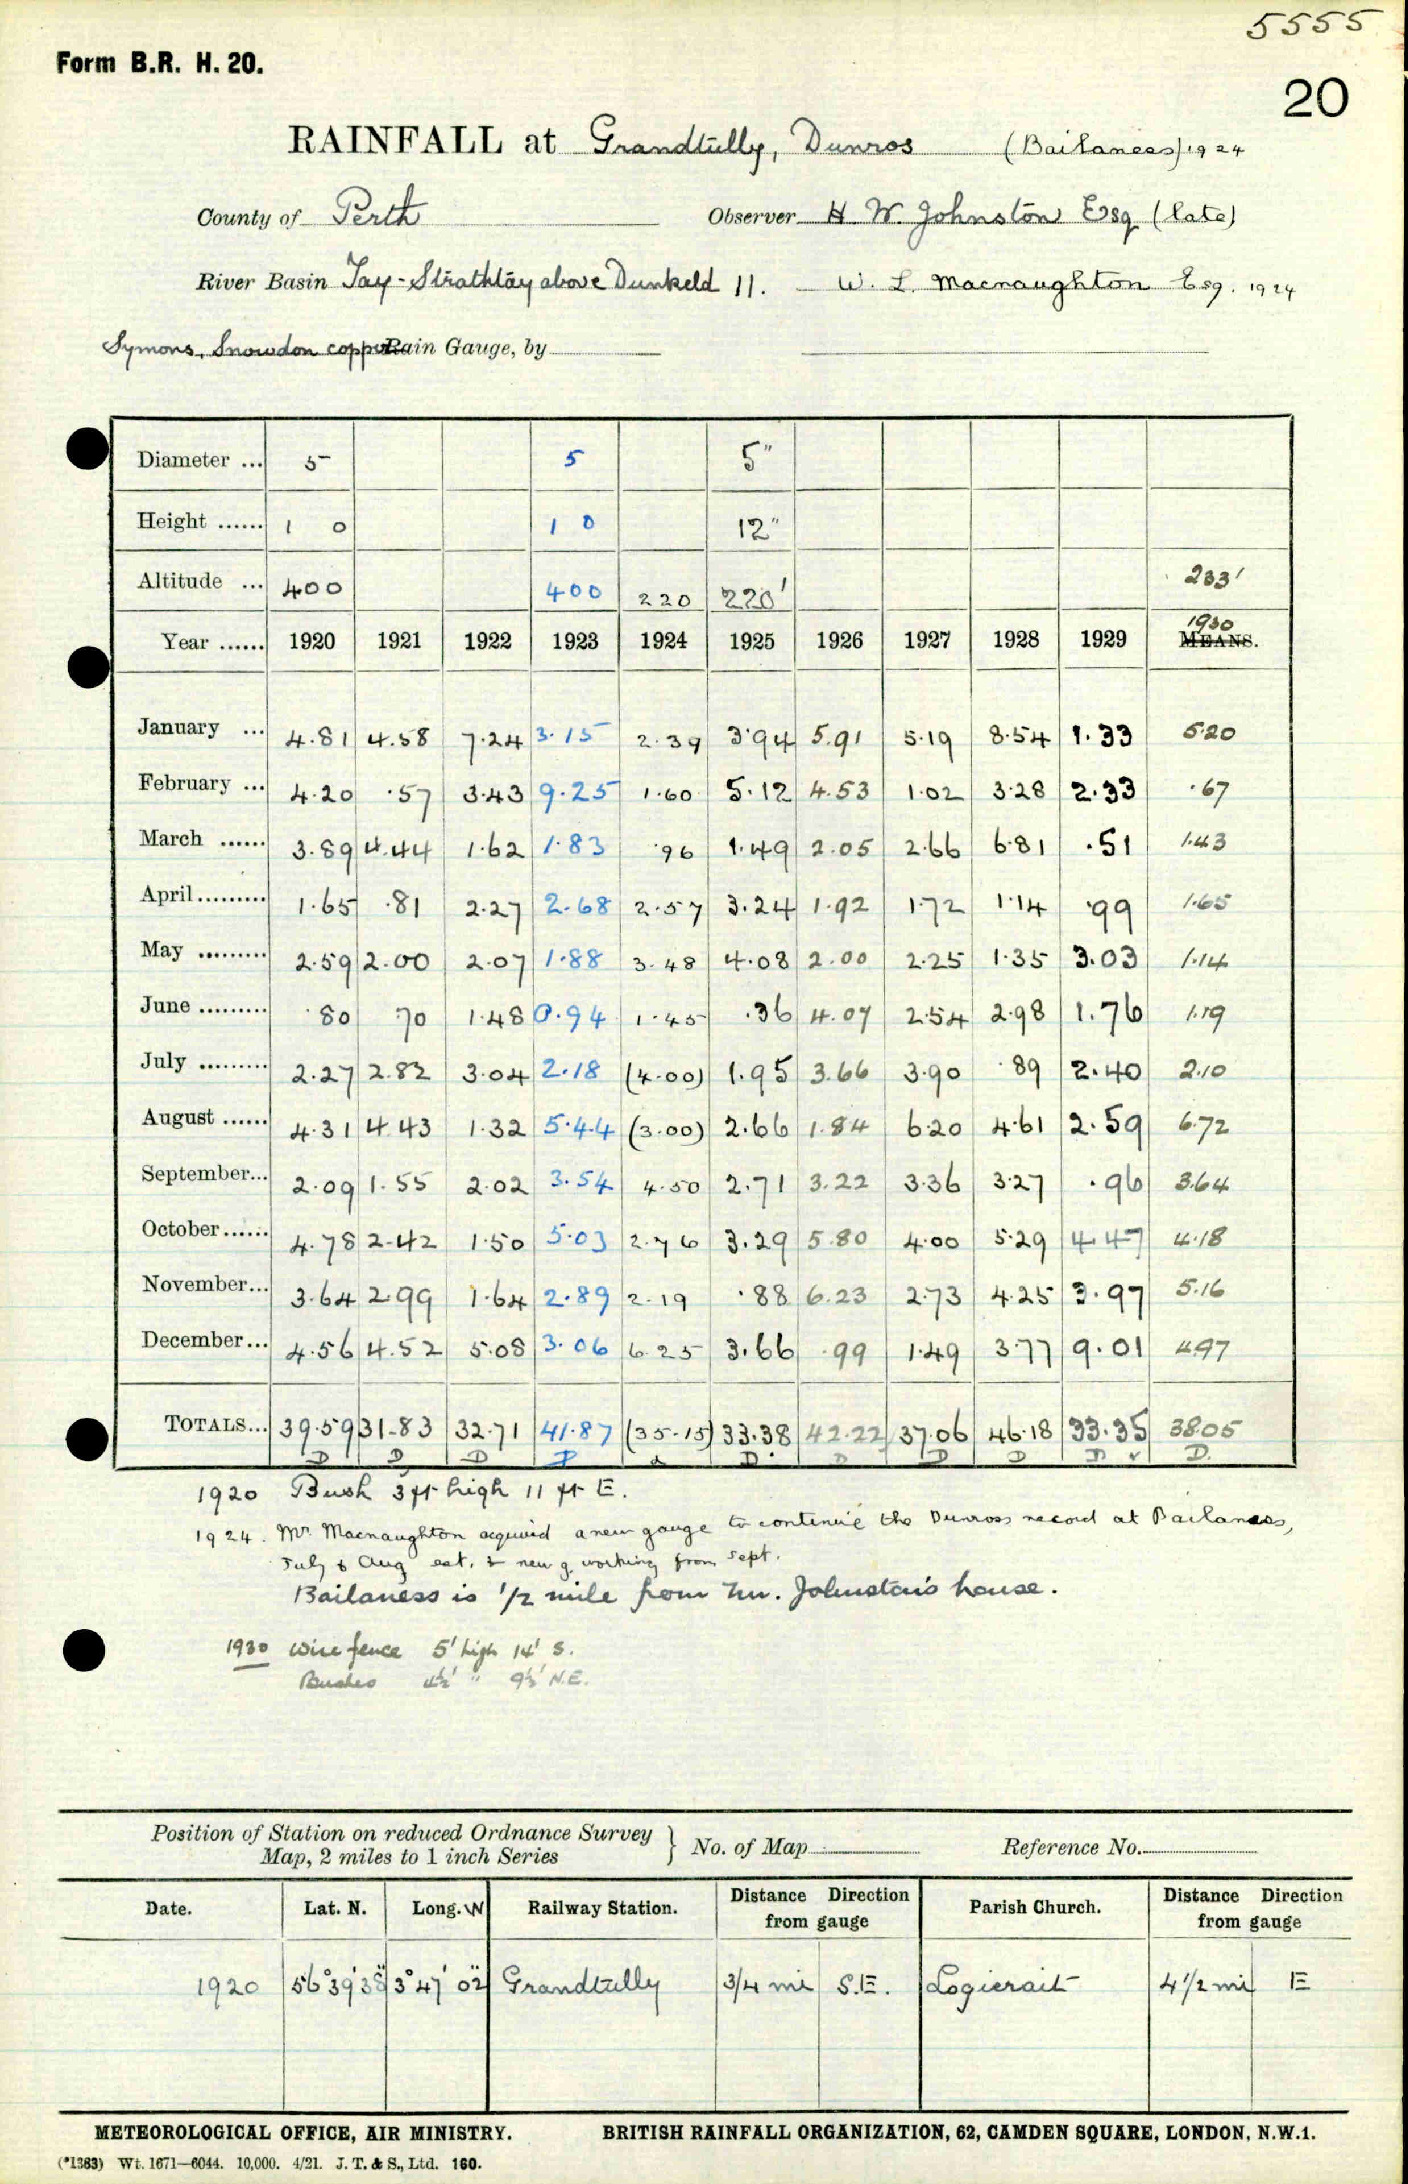 5555
Form B.R. H. 20.
20
RAINFALL at Grandtully, Dunros (Bailaness) 1924
County of Perth Observer H. W. Johnston Esq (late)
River Basin Tay - Strathtay above Dunkeld 11. W. L. Macnaughton Esq. 1924
Symons, Snowdon copper Rain Gauge, by
Diameter ... 5 5 5"
Height ...... 1 0 1 0 12"
Altitude ... 400 400 220 220' 233'
1930
Year ...... 1920 1921 1922 1923 1924 1925 1926 1927 1928 1929 MEANS.
January ... 4.81 4.58 7.24 3.15 2.39 3.94 5.91 5.19 8.54 1.33 5.20
February ... 4.20 .57 3.43 9.25 1.60 5.12 4.53 1.02 3.28 2.33 .67
March ...... 3.89 4.44 1.62 1.83 .96 1.49 2.05 2.66 6.81 .51 1.43
April ......... 1.65 .81 2.27 2.68 2.57 3.24 1.92 1.72 1.14 .99 1.65
May ......... 2.59 2.00 2.07 1.88 3.48 4.08 2.00 2.25 1.35 3.03 1.14
June ......... .80 70 1.48 0.94 1.45 .36 4.07 2.54 2.98 1.76 1.19
July ......... 2.27 2.82 3.04 2.18 (4.00) 1.95 3.66 3.90 .89 2.40 2.10
August ...... 4.31 4.43 1.32 5.44 (3.00) 2.66 1.84 6.20 4.61 2.59 6.72
September... 2.09 1.55 2.02 3.54 4.50 2.71 3.22 3.36 3.27 .96 3.64
October ...... 4.78 2.42 1.50 5.03 2.76 3.29 5.80 4.00 5.29 4.47 4.18
November... 3.64 2.99 1.64 2.89 2.19 .88 6.23 2.73 4.25 3.97 5.16
December... 4.56 4.52 5.08 3.06 6.25 3.66 .99 1.49 3.77 9.01 4.97
TOTALS... 39.59 31.83 32.71 41.87 (35.15) 33.38 42.22 37.06 46.18 33.35 38.05
D D D D D D D D D D.
1920 Bush 3 ft high 11 ft E.
1924. Mr. Macnaughton acquired a new gauge to continue the Dunross record at Bailaness,
July & Aug est. & new g. working from Sept.
Bailaness is 1/2 mile from Mr. Johnston's house.
1930 Wire fence 5' high 14' S.
Bushes 4½' " 9½' N.E.
Position of Station on reduced Ordnance Survey
Map, 2 miles to 1 inch Series } No. of Map Reference No.
Date. Lat. N. Long. W Railway Station. Distance Direction from gauge Parish Church. Distance Direction from gauge
1920 56°39'38" 3°47'02" Grandtully 3/4 mi S.E. Logierait 4 1/2 mi E
METEOROLOGICAL OFFICE, AIR MINISTRY. BRITISH RAINFALL ORGANIZATION, 62, CAMDEN SQUARE, LONDON, N.W.1.
(*1383) Wt. 1671—6044. 10,000. 4/21. J. T. & S., Ltd. 160.